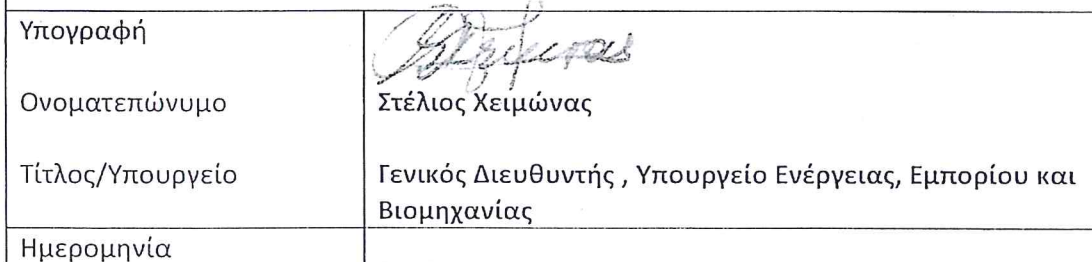 Υπογραφή
Ονοματεπώνυμο
Στέλιος Χειμώνας
Τίτλος/Υπουργείο
Γενικός Διευθυντής , Υπουργείο Ενέργειας, Εμπορίου και
Βιομηχανίας
Ημερομηνία